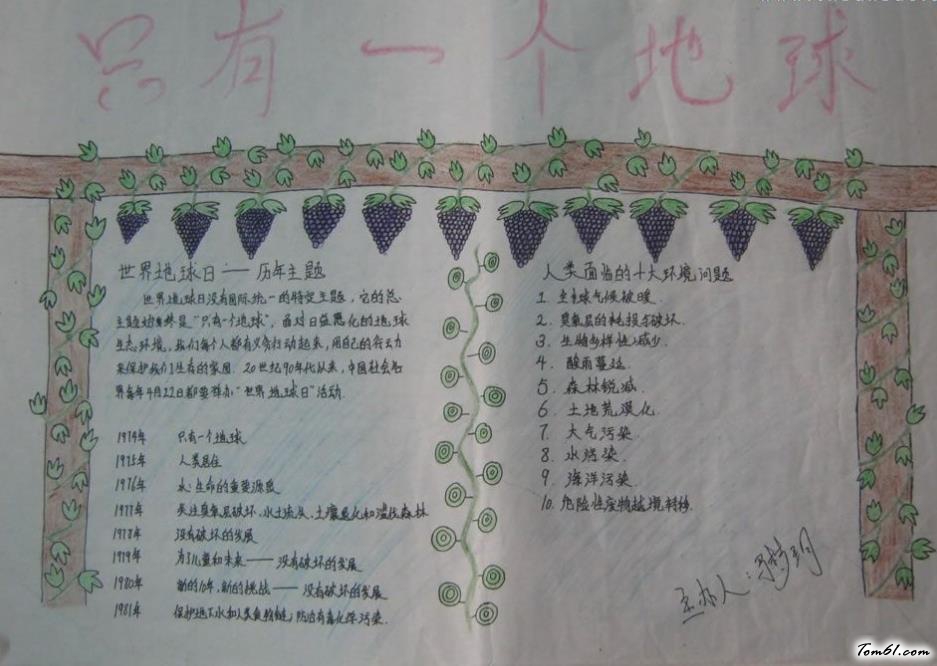 只有一个地球
世界地球日——历年主题
世界地球日没有国际统一的特定主题，它的总
主题始终是“只有一个地球”，面对日益恶化的地球
生态环境，我们每个人都有义务行动起来，用自己的行动
来保护我们生存的家园。20世纪90年代以来，中国社会各
界每年4月22日都要举办“世界地球日”活动.
1974年 只有一个地球
1975年 人类居住
1976年 水：生命的重要源泉
1977年 关注臭氧层破坏、水土流失、土壤退化和滥伐森林
1978年 没有破坏的发展
1979年 为了儿童和未来——没有破坏的发展
1980年 新的10年，新的挑战——没有破坏的发展
1981年 保护地下水和人类食物链；防治有毒化学污染.
人类面临的十大环境问题
1. 全球气候被暖.
2. 臭氧层的耗损与破坏.
3. 生物多样性减少.
4. 酸雨蔓延
5. 森林锐减.
6. 土地荒漠化.
7. 大气污染.
8. 水污染.
9. 海洋污染.
10. 危险性废物越境转移.
主办人：
Tom61.com